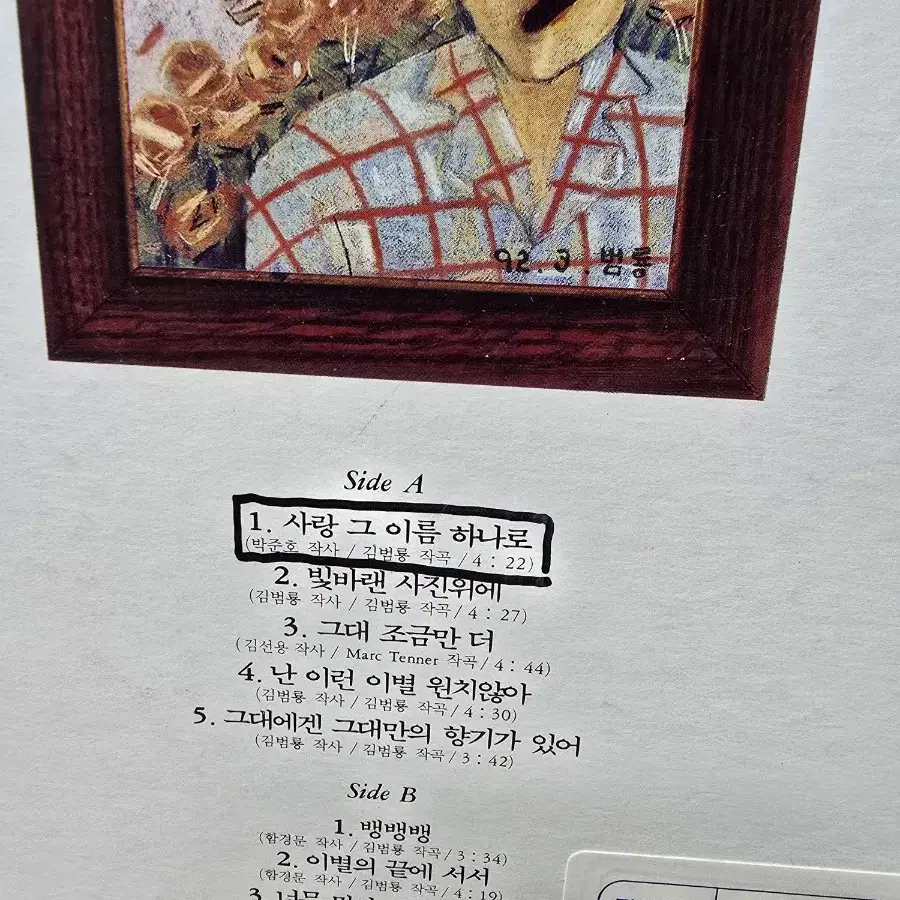 92.3.범룡
Side A
1. 사랑 그 이름 하나로
(박준호 작사 / 김범룡 작곡 / 4 : 22)
2. 빛바랜 사진위에
(김범룡 작사 / 김범룡 작곡 / 4 : 27)
3. 그대 조금만 더
(김선용 작사 / Marc Tenner 작곡 / 4 : 44)
4. 난 이런 이별 원치않아
(김범룡 작사 / 김범룡 작곡 / 4 : 30)
5. 그대에겐 그대만의 향기가 있어
(김범룡 작사 / 김범룡 작곡 / 3 : 42)
Side B
1. 뱅뱅뱅
(함경문 작사 / 김범룡 작곡 / 3 : 34)
2. 이별의 끝에 서서
(함경문 작사 / 김범룡 작곡 / 4 : 19)
3. 너무